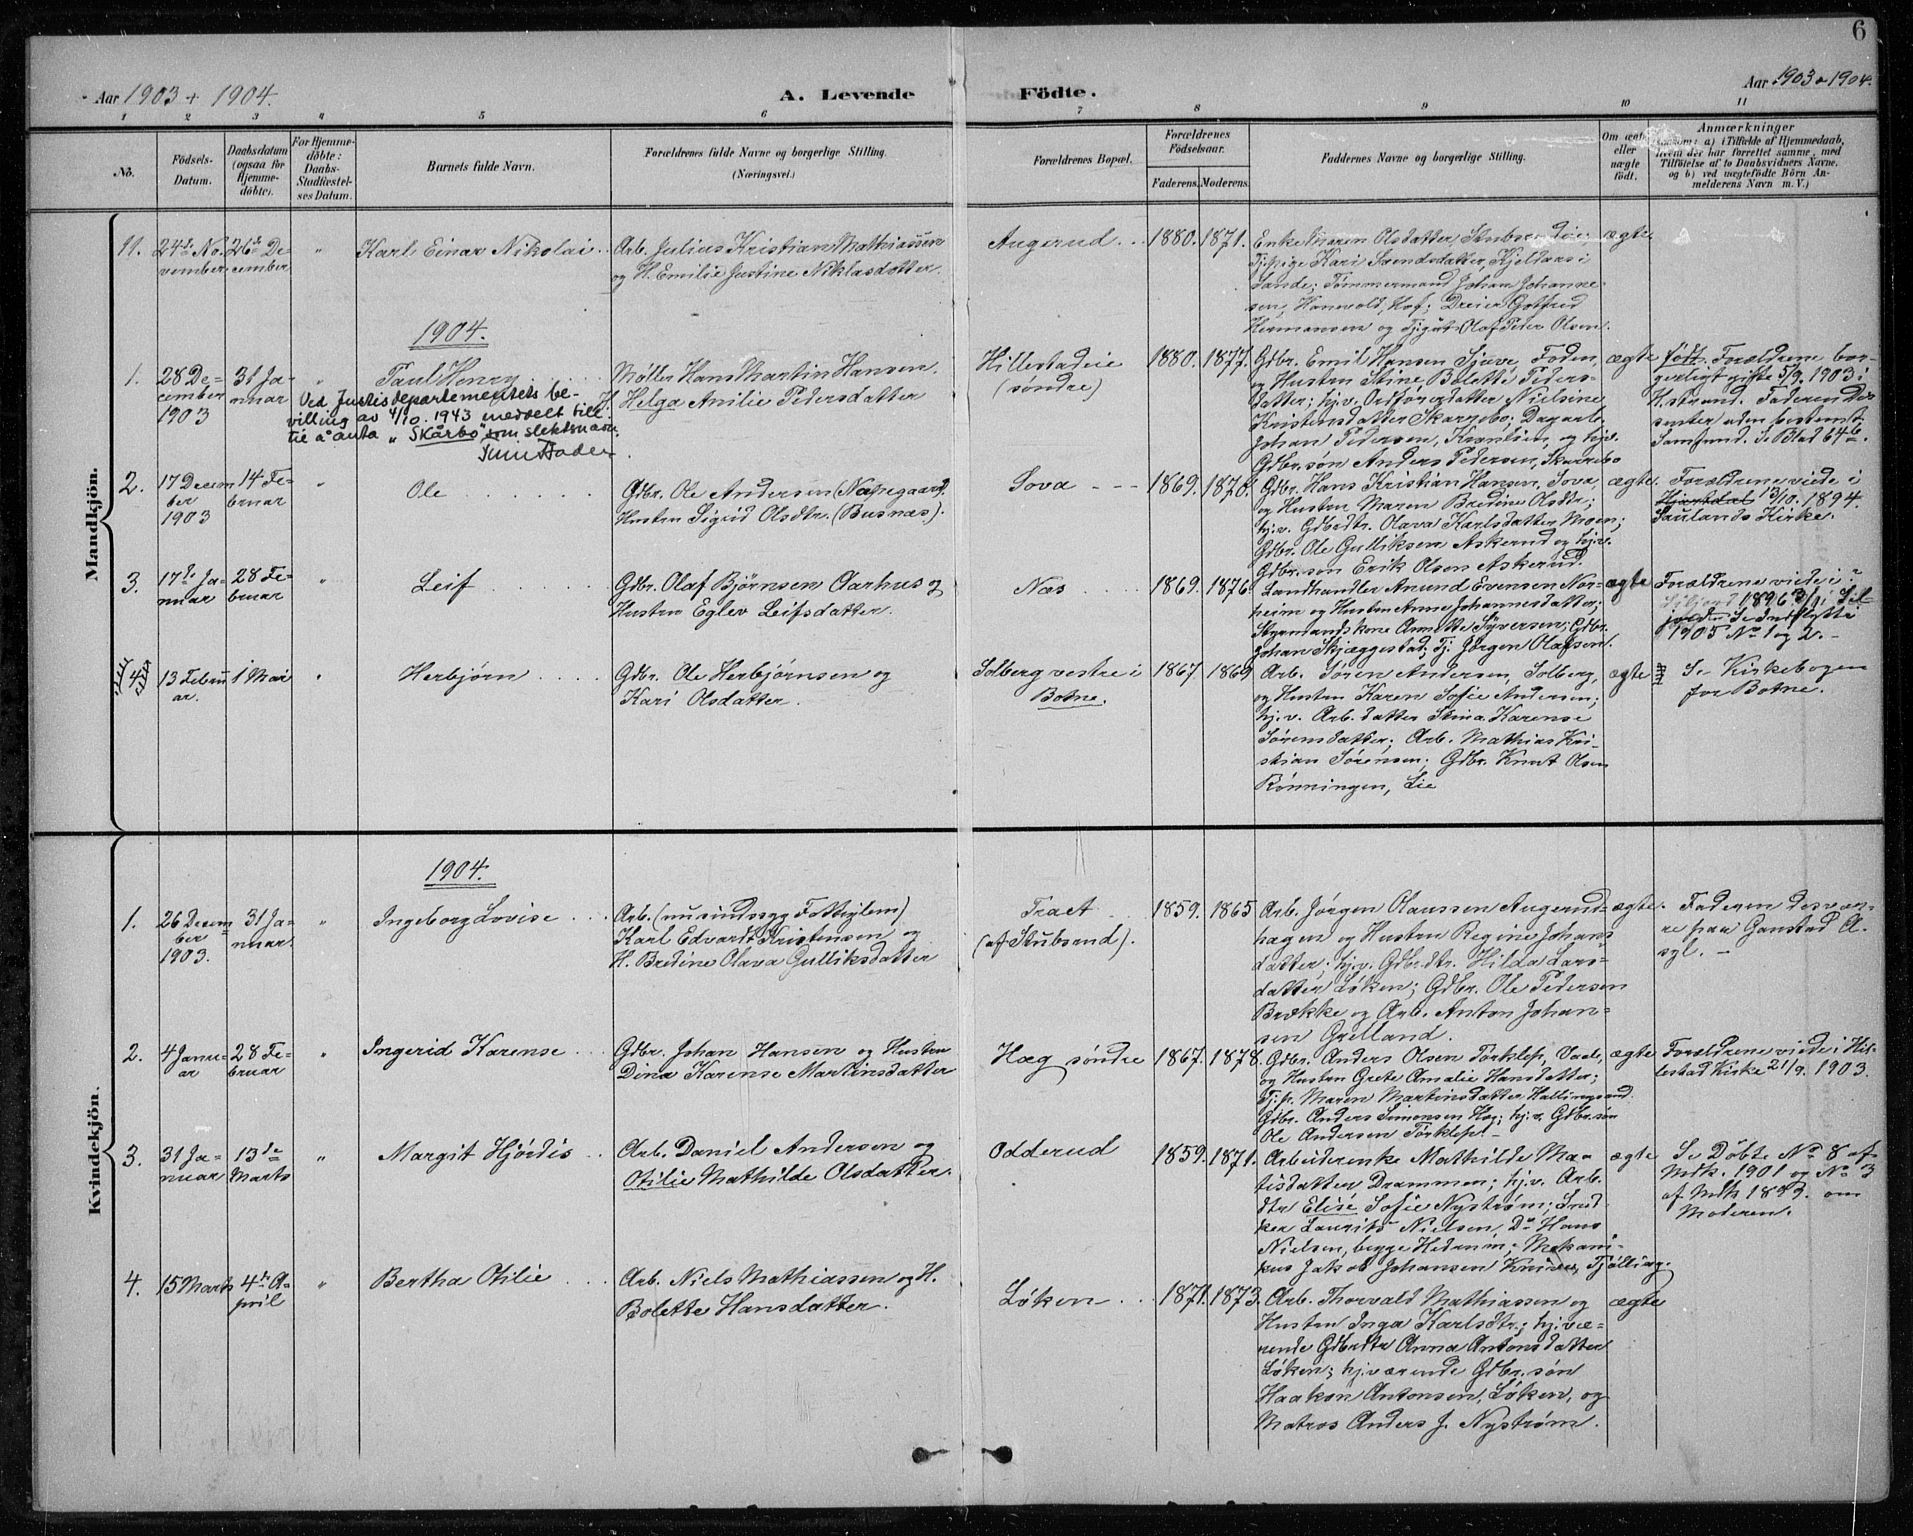 6
Aar 1903 + 1904.
A. Levende
Födte.
Aar 1903 + 1904.
1 2 3 4 5 6 7 8 9 10 11
No.
Födsels-
Datum.
Daabsdatum
(ogsaa for
Hjemme-
döbte).
For Hjemme-
döbte:
Daabs-
Stadfæstel-
ses Datum.
Barnets fulde Navn.
Forældrenes fulde Navne og borgerlige Stilling.
(Næringsvei.)
Forældrenes Bopæl.
Forældrenes
Födselsaar.
Faderens. Moderens.
Faddernes Navne og borgerlige Stilling.
Om ægte
eller
uægte
födt.
Anmærkninger
(saasom: a) i Tilfælde af Hjemmedaab,
hvem der har forrettet samme, med
Tilföielse af to Daabsvidners Navne,
og b) ved uægtefödte Börn An-
melderens Navn m. V.)
Mandkjön.
11.
24de No-
vember
26de De-
cember
"
Karl Einar Nikolai
Arb. Julius Kristian Mathiassen
og H. Emilie Justine Niklasdatter.
Augerud
1880. 1871.
Enke Maren Olsdatter, Stubsendøie;
Tj.pige Kari Svendsdatter, Kjeldaas i
Sande; Tømmermand Johan Johanne-
sen, Hanevold, Hof; Dreier Gotfred
Hermansen og Tjgut Olaf Peder Olsen.
ægte
1904.
1.
28 De-
cember
1903
31 Ja-
nuar
"
Paul Henry
Ved Justisdepartementets be-
villing av 4/10. 1943 meddelt till.
til å anta "Skårbø" som slektsnavn.
Møller Hans Martin Hansen
H. Helga Amilie Pedersdatter
Hillestadeie
(søndre)
1880. 1877.
Gdbr. Emil Hansen Sjøve, Foden,
og Husten Stine Bolette Peders-
datter; hj.v. Ordførerdatter Nielsine
Kristensdatter Skarrebo; Dagarb.
Johan Pedersen, Kranlien, og hjv.
Gdbr.søn Anders Pedersen, Skarrebo
ægte
født. Forældrene bor-
gerligt gifte 5/9. 1903 i
H.strand. Faderen Dis-
senter uden bestemt
Samfund. Se Blad 64 b.
2.
17 Decem
ber
1903
14 Fe-
bruar
"
Ole
Gdbr. Ole Andersen (Napegaard)
Husten Sigrid Olsdtr. (Busnæs).
Sova
1869. 1870.
Gdbr. Hans Kristian Hansen, Sova,
og Husten Maren Bredine Olsdtr;
hj.v. Gdbrdtr. Olava Karlsdatter Moen;
Gdbr. Ole Gulliksen Askerud og hj.v.
Gdbr. søn Erik Olsen Askerud.
ægte.
Forældrene viede i
Hjartdal 13/10. 1894.
Saulands Kirke.
3.
17de Ja-
nuar
28 Fe-
bruar
"
Leif
Gdbr. Olaf Bjørnsen Aarhus og
Husten Eglev Leifsdatter.
Næs
1869. 1876
Landhandler Anund Evensen Nor-
heim og Husten Anne Johannesdatter;
Styrmandskone Annette Syversen; Gdbr.
Johan Skjæggestad; Tj. Jørgen Olafsen.
ægte
Forældrene viede i?
1896 3/1 i Sel-
jord. Se Indflyttte
1905 No 1 og 2. -
4
13 Febru
ar.
1 Mar
"
Herbjørn
Gdbr. Ole Herbjørnsen og
Kari Olsdatter.
Solberg vestre i
Botne.
1867 1869
Arb. Søren Andersen, Solberg,
og Husten Karen Sofie Andersen;
hj.v. Arb. datter Stina Karense
Sørensdatter; Arb. Mathias Kri-
stian Sørensen; Gdbr. Knut Olsen
Rønningen, Lie
ægte
Se Kirkebogen
for Botne.
Kvindekjön.
1904.
1.
26 Decem
ber
1903.
31 Ja-
nuar.
"
Ingeborg Lovise
Arb. (nu sindssyg Fattiglem)
Karl Edvardt Kristensen og
H. Bredine Olava Gulliksdatter
Traet
(af Stubsend).
1859. 1865
Arb. Jørgen Olaussen Augerud-
hagen og Husten Regine Johans-
datter; hj.v. Gdbrdtr. Hilda Lars-
datter Løken; Gdbr. Ole Pedersen
Brække og Arb. Anton Johan-
sen Grelland.
ægte.
Faderen desvær-
re paa Gaustad A-
syl. -
2.
4 Janu-
ar
28 Fe-
bruar
"
Ingerid Karense
Gdbr. Johan Hansen og Husten
Dina Karense Martinsdatter
Hæg søndre
1867. 1878.
Gdbr. Anders Olsen Torklep, Vaale,
og Husten Grete Amalie Hansdatter;
Tj.p. Maren Martinsdatter Hallingsand.
Gdbr. Anders Simonsen Hæg; hj.v. Gdbr.søn
Ole Andersen Torklep. -
ægte
Forældrene viede i Hil-
lestad Kirke 21/9. 1903.
3.
31 Ja-
nuar
13de
Marts
"
Margit Hjørdis
Arb. Daniel Andersen og
Otilie Mathilde Olsdatter.
Odderud
1859. 1871.
Arbeiderenke Mathilde Ma-
tisdatter Drammen; hj.v. Arb.
dtr Elise Sofie Nystrøm; Sned
ker Laurits Nielsen, Do Hans
Nielsen, begge Hedrum; Mekani-
kus Jakob Johansen Tjølling.
ægte
Se Døbte No 8 af
Mdk. 1901 og No 3
af Mdk 1893. om
Moderen.
4.
15 Marts
4de A-
pril
"
Bertha Otilie
Arb. Niels Mathiassen og H.
Bolette Hansdatter.
Løken
1871. 1873.
Arb. Thorvald Mathiassen og
Husten Inga Karlsdtr.; hj.væ-
rende Gdbrdtr Anna Antonsdatter
Løken; hj.værende Gdbr.søn
Haakon Antonsen, Løken, og
Matros Anders J. Nystrøm.
ægte